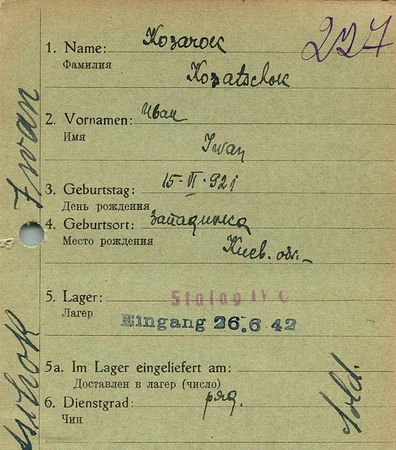 227
1. Name: Козачок
Фамилия
Kozatschok
2. Vornamen: Иван
Имя
Iwan
3. Geburtstag: 15-II-921
День рождения
4. Geburtsort: Западинка
Место рождения
Киев. обл.
5. Lager: Stalag IV C
Лагер
Eingang 26.6 42
5a. Im Lager eingeliefert am:
Доставлен в лагер (число)
6. Dienstgrad: ряд.
Чин
Sold.
Iwan